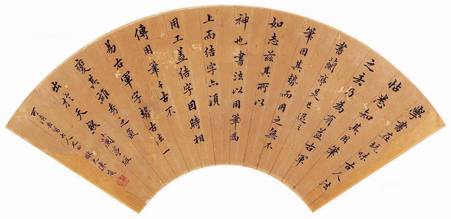 學書在玩味古人法
帖悉知其用筆
之意乃為有益右軍
書蘭亭是已退
筆因其勢而用之無不
如志茲其所以
神也書法以用筆為
上而結字亦須
用工蓋結字因時相
傳用筆千古不
易右軍字勢古法一
變其雄秀之氣
出於天然